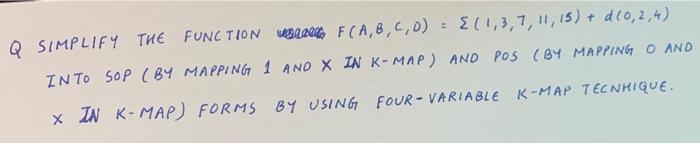 Q SIMPLIFY THE FUNCTION F(A,B,C,D) = Σ(1,3,7,11,15) + d(0,2,4)
INTO SOP (BY MAPPING 1 AND X IN K-MAP) AND POS (BY MAPPING 0 AND
X IN K-MAP) FORMS BY USING FOUR-VARIABLE K-MAP TECNHIQUE.